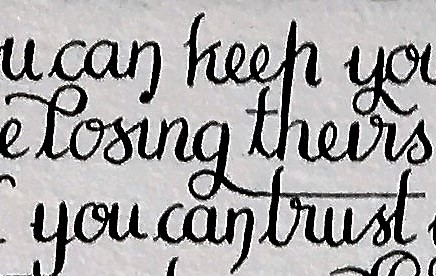 u can keep you
e losing theirs
you can trust